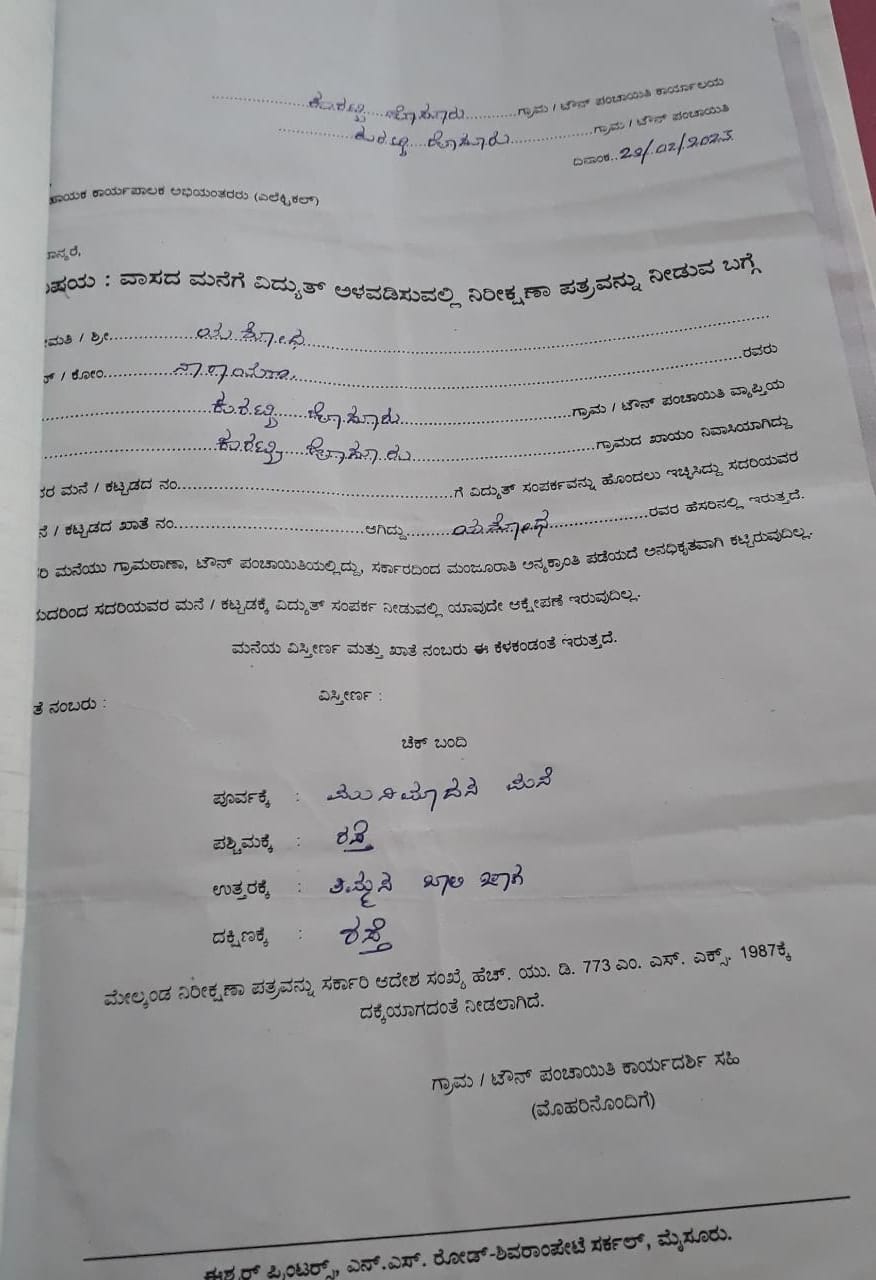 ಕುರಟ್ಟಿ ಹೊಸೂರು ಗ್ರಾಮ / ಟೌನ್ ಪಂಚಾಯಿತಿ ಕಾರ್ಯಾಲಯ
ಕುರಟ್ಟಿ ಹೊಸೂರು ಗ್ರಾಮ / ಟೌನ್ ಪಂಚಾಯಿತಿ
ದಿನಾಂಕ..
ಕಾರ್ಯಪಾಲಕ ಅಭಿಯಂತರರು (ಎಲೆಕ್ಟ್ರಿಕಲ್)
: ವಾಸದ ಮನೆಗೆ ವಿದ್ಯುತ್ ಅಳವಡಿಸುವಲ್ಲಿ ನಿರೀಕ್ಷಣಾ ಪತ್ರವನ್ನು ನೀಡುವ ಬಗ್ಗೆ
/ ಶ್ರೀ ಯಶೋಧ
/ ಕೋಂ ನಾರಾಯಣ ರವರು
ಕುರಟ್ಟಿ ಹೊಸೂರು ಗ್ರಾಮ / ಟೌನ್ ಪಂಚಾಯಿತಿ ವ್ಯಾಪ್ತಿಯ
ಕುರಟ್ಟಿ ಹೊಸೂರು ಗ್ರಾಮದ ಖಾಯಂ ನಿವಾಸಿಯಾಗಿದ್ದು
ಮನೆ / ಕಟ್ಟಡದ ನಂ ಗೆ ವಿದ್ಯುತ್ ಸಂಪರ್ಕವನ್ನು ಹೊಂದಲು ಇಚ್ಛಿಸಿದ್ದು ಸದರಿಯವರ
/ ಕಟ್ಟಡದ ಖಾತೆ ನಂ ಆಗಿದ್ದು ಯಶೋಧ ರವರ ಹೆಸರಿನಲ್ಲಿ ಇರುತ್ತದೆ.
ಮನೆಯು ಗ್ರಾಮಠಾಣಾ, ಟೌನ್ ಪಂಚಾಯಿತಿಯಲ್ಲಿದ್ದು, ಸರ್ಕಾರದಿಂದ ಮಂಜೂರಾತಿ ಅನ್ಯಕ್ರಾಂತಿ ಪಡೆಯದೆ ಅನಧಿಕೃತವಾಗಿ ಕಟ್ಟಿರುವುದಿಲ್ಲ.
ಸದರಿಯವರ ಮನೆ / ಕಟ್ಟಡಕ್ಕೆ ವಿದ್ಯುತ್ ಸಂಪರ್ಕ ನೀಡುವಲ್ಲಿ ಯಾವುದೇ ಆಕ್ಷೇಪಣೆ ಇರುವುದಿಲ್ಲ.
ಮನೆಯ ವಿಸ್ತೀರ್ಣ ಮತ್ತು ಖಾತೆ ನಂಬರು ಈ ಕೆಳಕಂಡಂತೆ ಇರುತ್ತದೆ.
ನಂಬರು : ವಿಸ್ತೀರ್ಣ :
ಚೆಕ್ ಬಂದಿ
ಪೂರ್ವಕ್ಕೆ : ಮುನಿಮಾದನ ಮನೆ
ಪಶ್ಚಿಮಕ್ಕೆ : ರಸ್ತೆ
ಉತ್ತರಕ್ಕೆ : ತಿಮ್ಮನ ಖಾಲಿ ಜಾಗ
ದಕ್ಷಿಣಕ್ಕೆ : ರಸ್ತೆ
ಮೇಲ್ಕಂಡ ನಿರೀಕ್ಷಣಾ ಪತ್ರವನ್ನು ಸರ್ಕಾರಿ ಆದೇಶ ಸಂಖ್ಯೆ ಹೆಚ್. ಯು. ಡಿ. 773 ಎಂ. ಎಸ್. ಎಕ್ಸ್. 1987ಕ್ಕೆ
ದಕ್ಕೆಯಾಗದಂತೆ ನೀಡಲಾಗಿದೆ.
ಗ್ರಾಮ / ಟೌನ್ ಪಂಚಾಯಿತಿ ಕಾರ್ಯದರ್ಶಿ ಸಹಿ
(ಮೊಹರಿನೊಂದಿಗೆ)
ಈಶ್ವರ್ ಪ್ರಿಂಟರ್ಸ್, ಎನ್.ಎಸ್. ರೋಡ್-ಶಿವರಾಂಪೇಟೆ ಸರ್ಕಲ್, ಮೈಸೂರು.